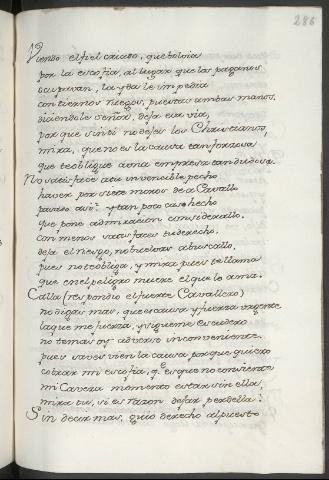 286
Viendo el fiel criado, que bolvia
por la escofia, al lugar que los paganos
ocupavan, la yda le impedia
con tiernos ruegos, puestas ambas manos,
diciendole señor, deja esa via,
porque si n̄o dejes los Christianos,
mira, que no es la causa tan forzosa
que te obligue a una empresa tan dudosa.
No satisface a tu invencible pecho
haver por siete moros de a Cavallo
passado assi y tan poco caso hecho
que pone admiracion considerallo.
con menos satisfaces tu derecho,
deja el riesgo, no buelvas a buscallo,
pues no te obliga, y mira pues te llamo
que en el peligro muere el que lo ama.
Calla (respondio el fuerte Cavallero)
no digas mas, que es causa y fuerza urgente
la que me fuerza, y sigueme escudero
no temas oy adverso inconveniente.
pues saves bien la causa porque quiero
cobrar mi escofia, q.e es que no consiente
mi Caveza momento estar sin ella,
mira tu, si es razon dejar perdella.
Sin decir mas, guio derecho al puesto